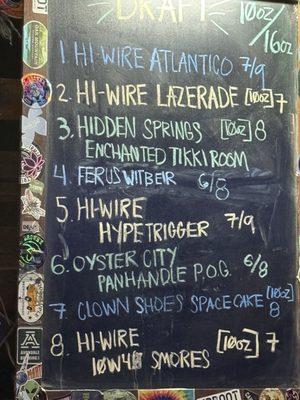 DRAFT
10oz/
16oz
1 HI-WIRE ATLANTICO 7/9
2. HI-WIRE LAZERADE [10oz] 7
3. HIDDEN SPRINGS [10oz] 8
ENCHANTED TIKKI ROOM
4. FERUS WITBEIR 6/8
5. HI-WIRE
HYPETRIGGER 7/9
6. OYSTER CITY
PANHANDLE P.O.G. 6/8
7. CLOWN SHOES SPACE CAKE [10oz]
8
8. HI-WIRE [10oz] 7
10W40 SMORES